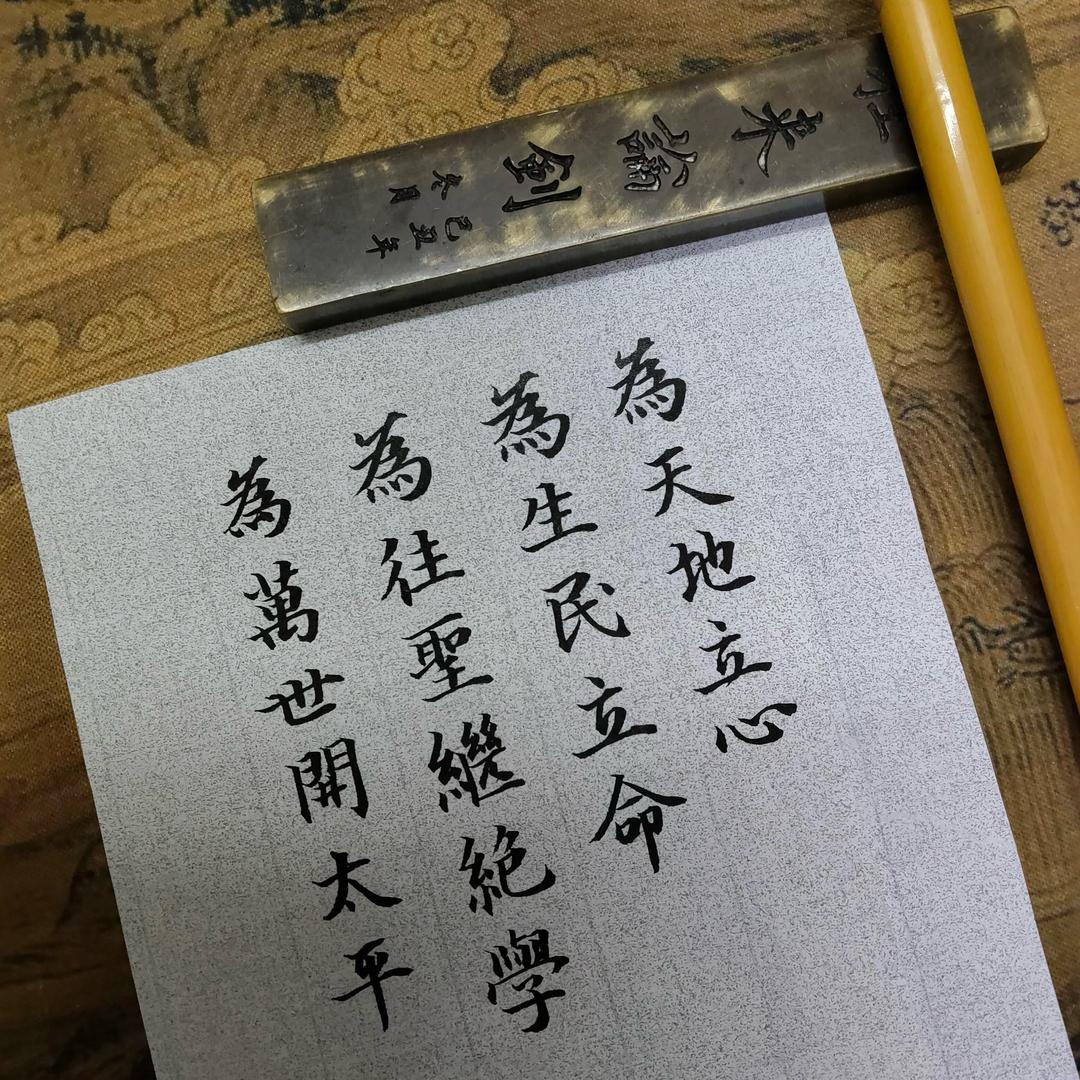 為天地立心
為生民立命
為往聖繼絶學
為萬世開太平
來論劍
己丑年
冬月